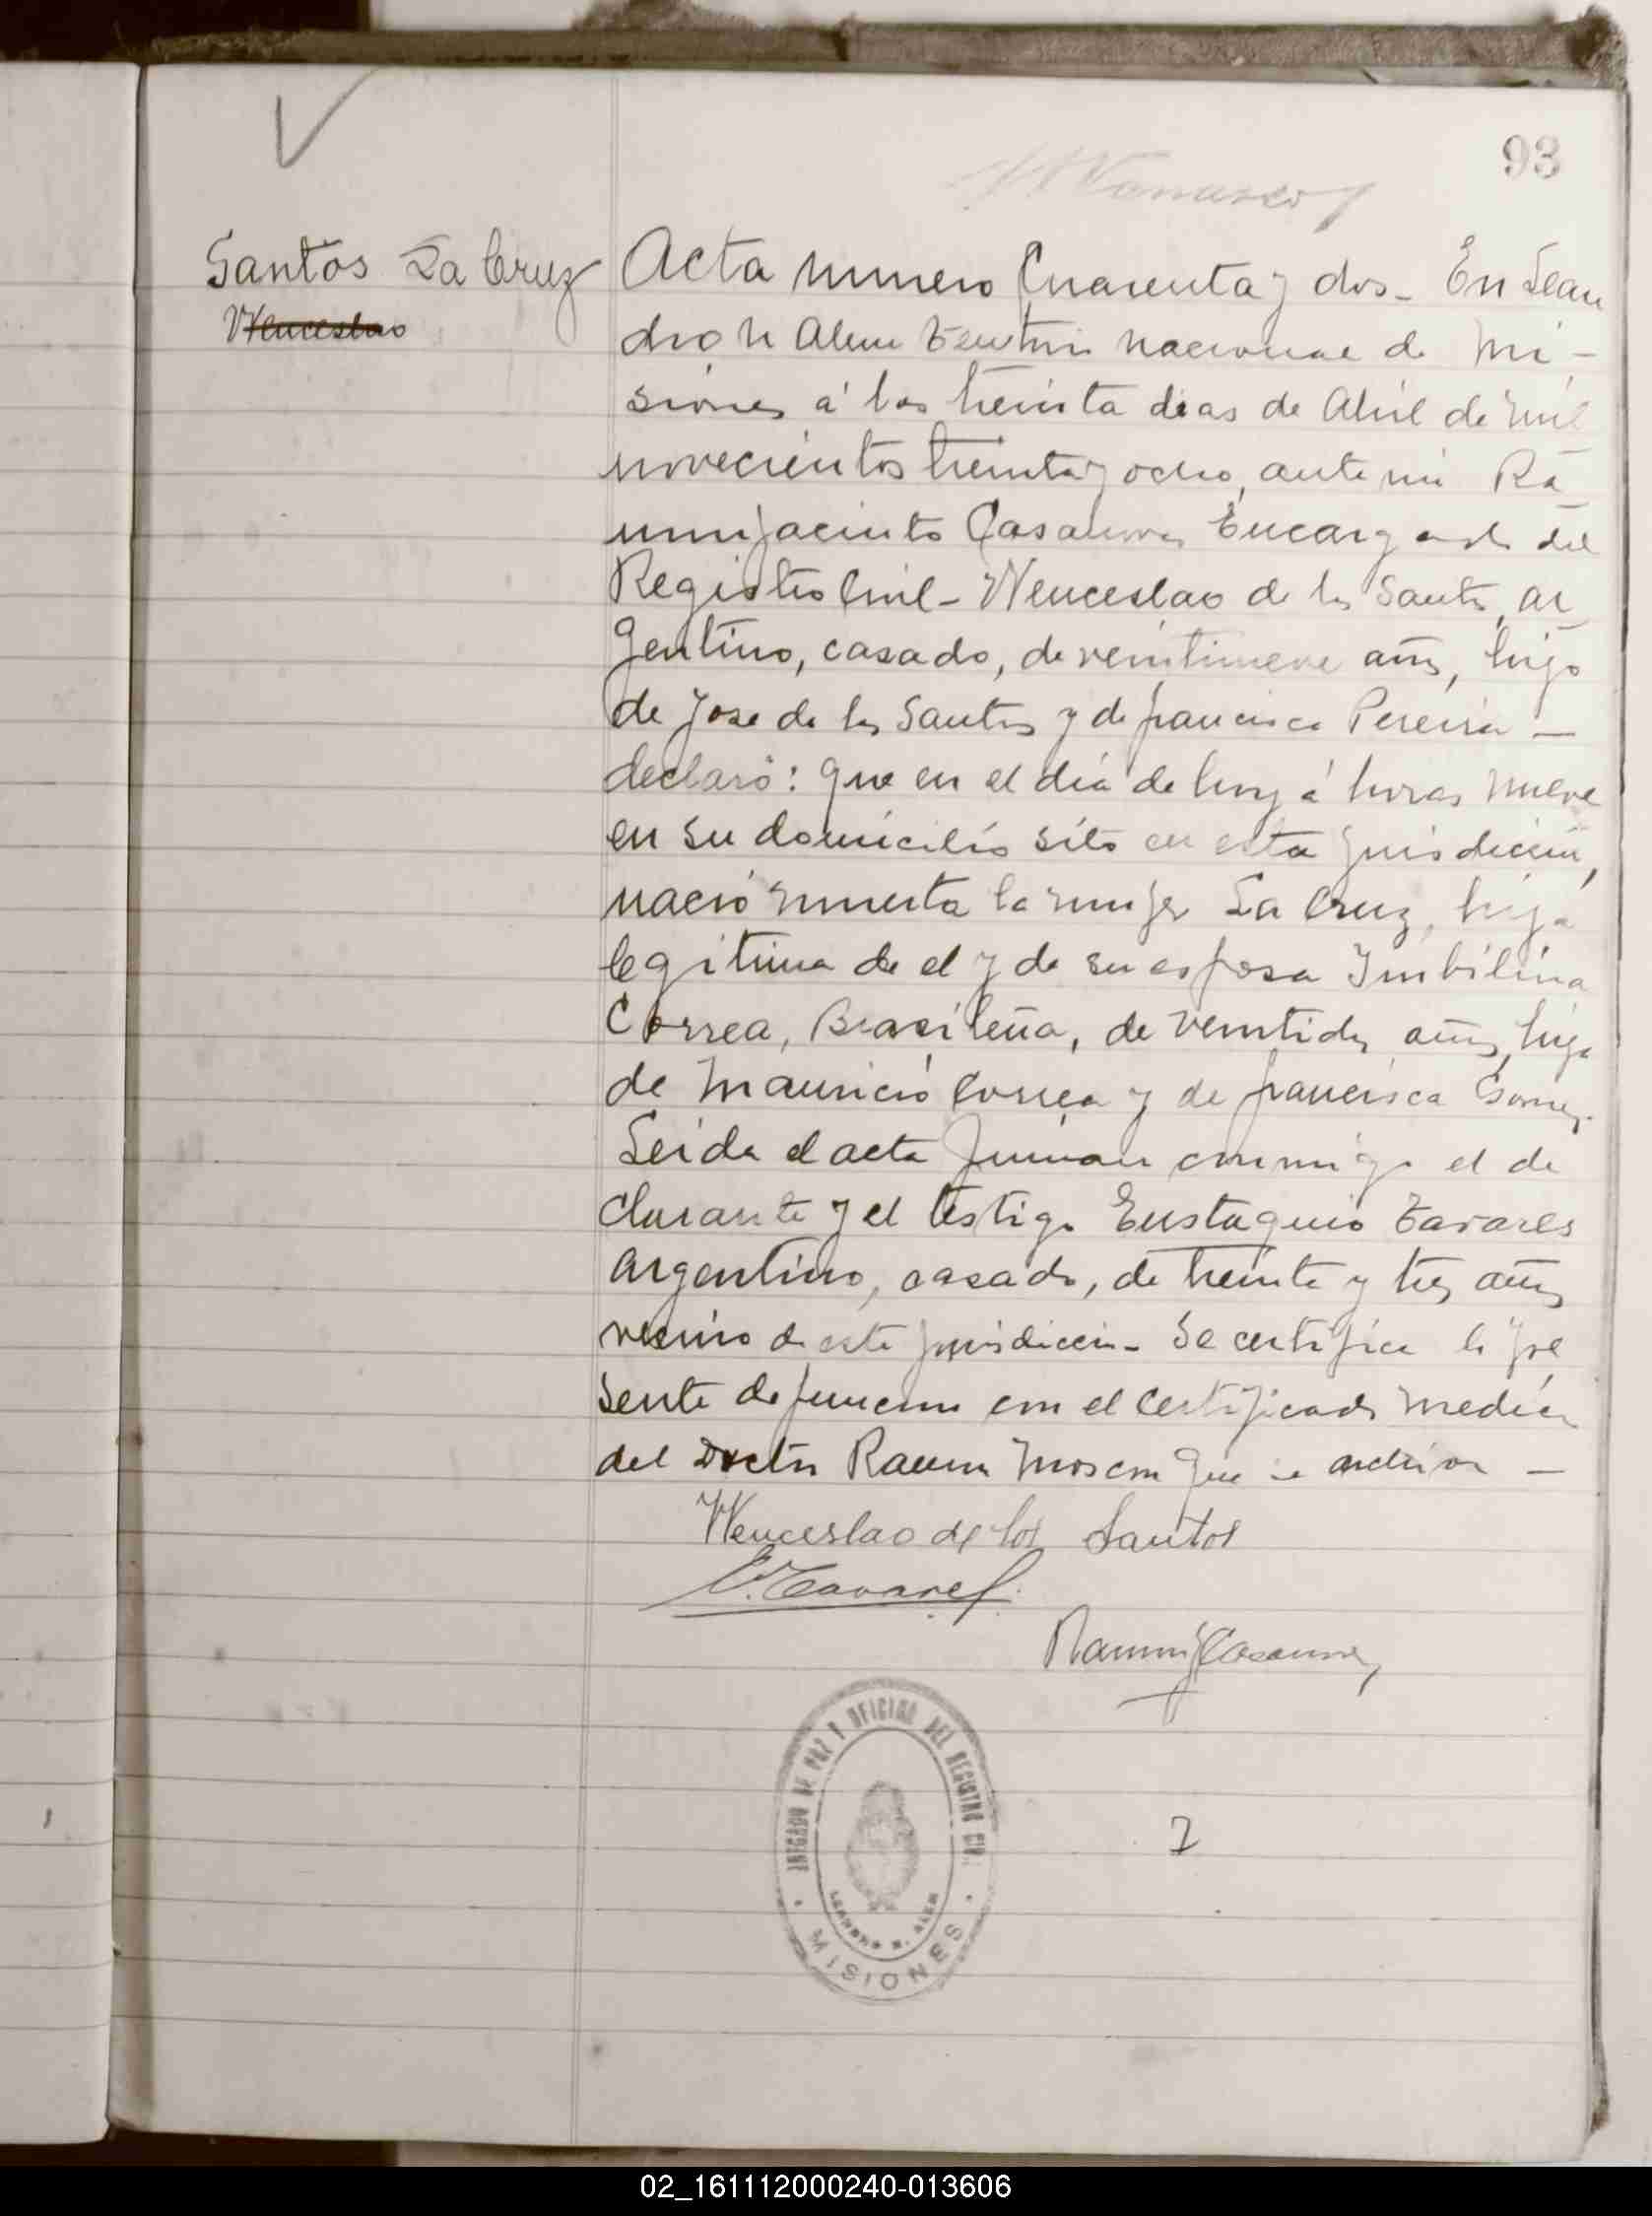 93
Santos La Cruz
Wenceslao
Acta numero Cuarenta y dos_ En Lean
dro N Alem Territorio nacional de Mi-
siones á los treinta dias de Abril de mil
novecientos treinta y ocho, ante mi Ra
mon Jacinto Casanova Encargado del
Registro Civil_ Wenceslao de los Santos, ar
gentino, casado, de veintinueve años, hijo
de Jose de los Santos y de francisca Pereira _
declaró: que en el dia de hoy á horas nueve
en su domicilio sito en esta jurisdiccion,
nació muerta la mujer La Cruz, hija
legitima de el y de su esposa Imbilina
Correa, Brasileña, de veintidos años, hija
de Mauricio Correa y de francisca Gomez.
Leida el acta firman conmigo el de
clarante y el testigo Eustaquio Tavares
argentino, casado, de treinta y tres años
vecino de esta jurisdiccion_ Se certifica la pre
sente defuncion con el certificado medico
del Doctor Ramon que se archiva _
Wenceslao de los Santos
E. Tavares.
Ramon J Casanova
JUZGADO DE PAZ Y OFICINA DEL REGISTRO CIVIL
LEANDRO N. ALEM
MISIONES
02_161112000240-013606